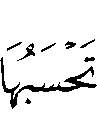 تَحْسَبُهَا